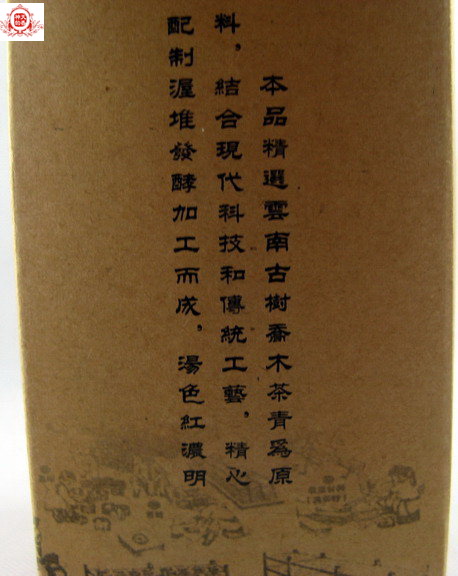 本品精選雲南古樹喬木茶青爲原
料，結合現代科技和傳統工藝，精心
配制渥堆發酵加工而成。湯色紅濃明